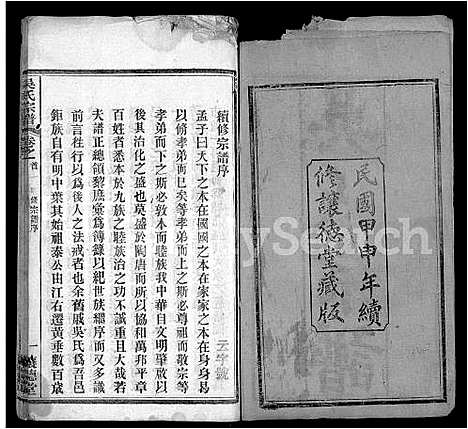 民國甲申年續
修讓德堂藏版
續修宗譜序
孟子曰天下之本在國國之本在家家之本在身身曷
以修孝弟而已矣等孝弟而上之斯必尊祖而敬宗等
孝弟而下之斯必親本而睦族我中華自文明肇啟以
其治化之盛也莫盛於陶唐而所以協和萬邦平章
百姓者悉本於九族之睦族治之功不誠重且大哉若
夫譜正總領黎庶彙為簿錄以紀世系繼序而立箴
前言往行以為後人之法戒者也余舊戚吳氏為吾邑
鉅族自有明中葉其始祖泰公由江右遷黃垂數百歲
吳氏宗譜
卷之一首
修宗譜序
一
讓德堂